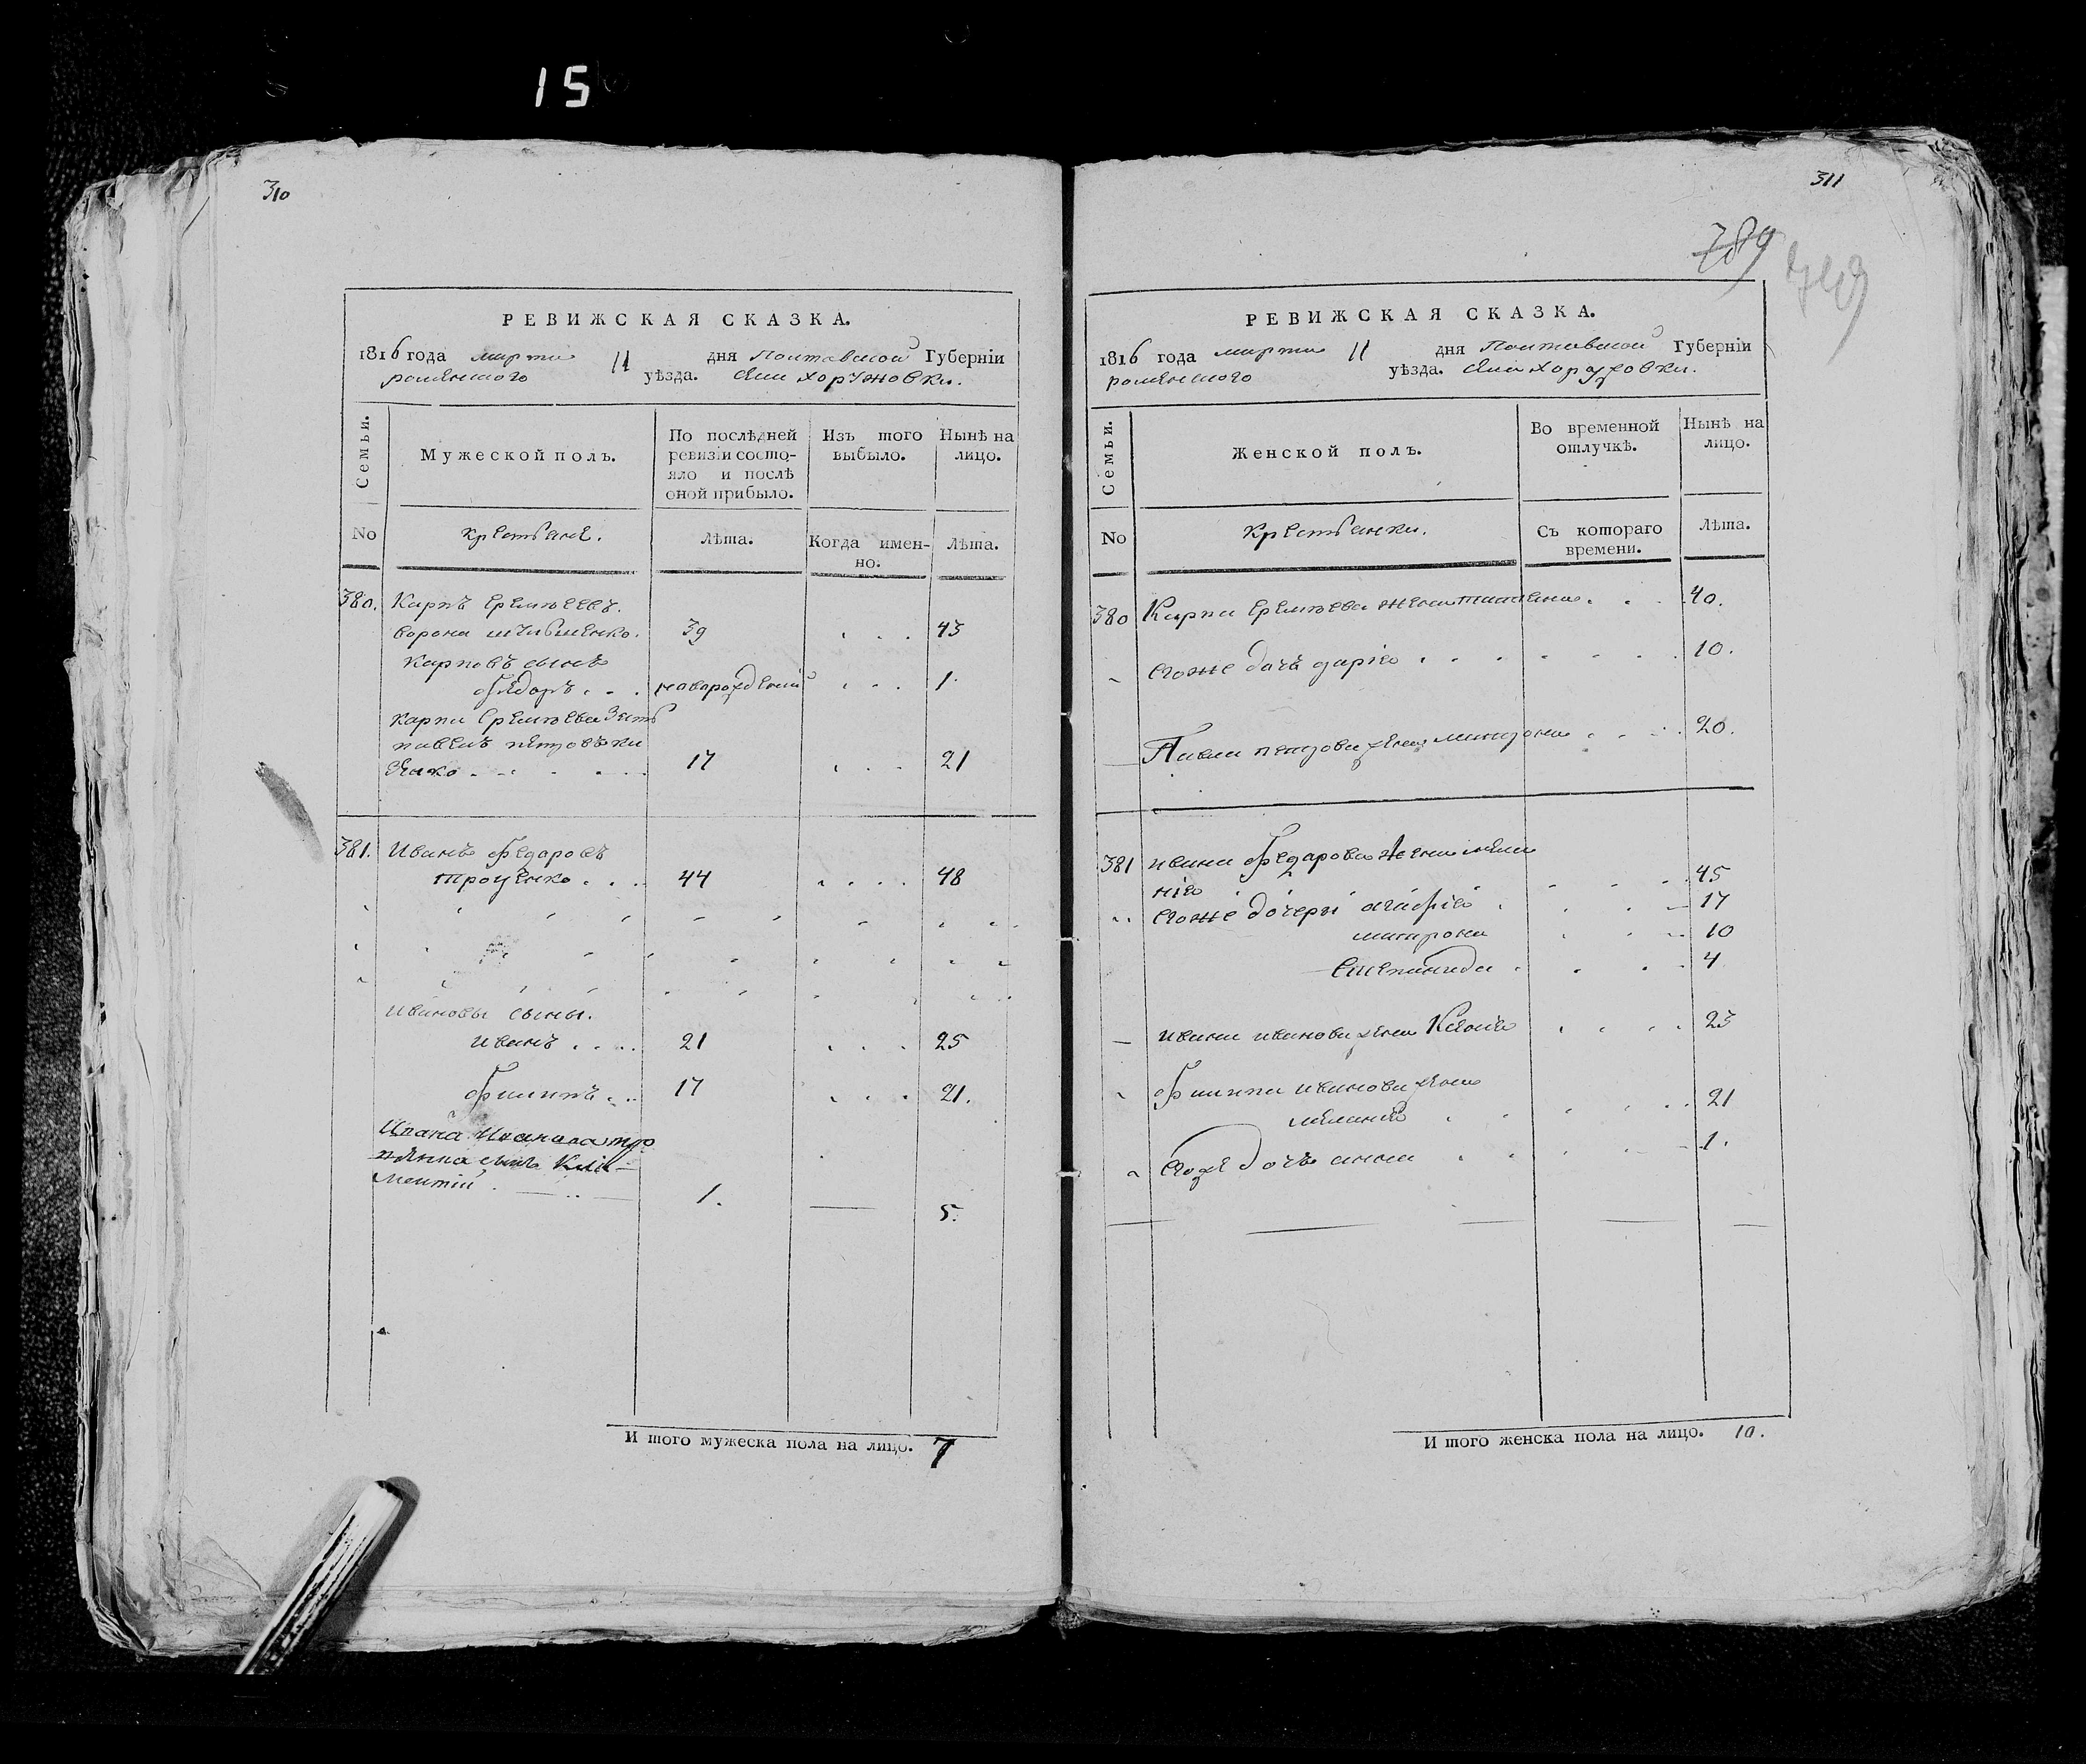 15
310
РЕВИЖСКАЯ СКАЗКА.
1816 года марта 11 дня Полтавской Губерніи
роменского уѣзда. села хоружовки.
Семьи.
Мужеской полъ.
По послѣдней ревизіи состояло и послѣ оной прибыло.
Изъ того выбыло.
Нынѣ на лицо.
No
крестьяне.
Лѣта.
Когда именно.
Лѣта.
380. Карпъ Еремѣевъ.
39 . . . 43
Карповъ сынъ
Федоръ . . . новорожденній . . . 1.
Карпа Еремѣева Зять
павелъ петровъ
17 . . . 21
381. Иванъ Федоровъ
троценко . . . 44 . . . . 48
Ивановы сыны.
Иванъ . . . . 21 . . . 25
Филипъ . . . 17 . . . 21.
Ивана Иванова тро
ценка сынъ Кли-
ментий 1. — 5.
И того мужеска пола на лицо. 7
311
789
РЕВИЖСКАЯ СКАЗКА.
1816 года марта 11 дня Полтавской Губерніи
роменского уѣзда. села Хоружовки.
Семьи.
Женской полъ.
Во временной отлучкѣ.
Нынѣ на лицо.
No
крестьянки.
Съ котораго времени.
Лѣта.
380 Карпа Еремѣева жена татияна . . . 40.
Егоже дочь дарія . . . . . . . 10.
Павла петрова жена матрона . . . . 20.
381 Ивана Федорова жена мела
нія 45
Егоже дочери агафія 17
матрона 10
4
Ивана Иванова жена Ксенія . . . . 23
Филипа Иванова жена
меланія 21
Егоже дочь анна 1.
И того женска пола на лицо. 10.